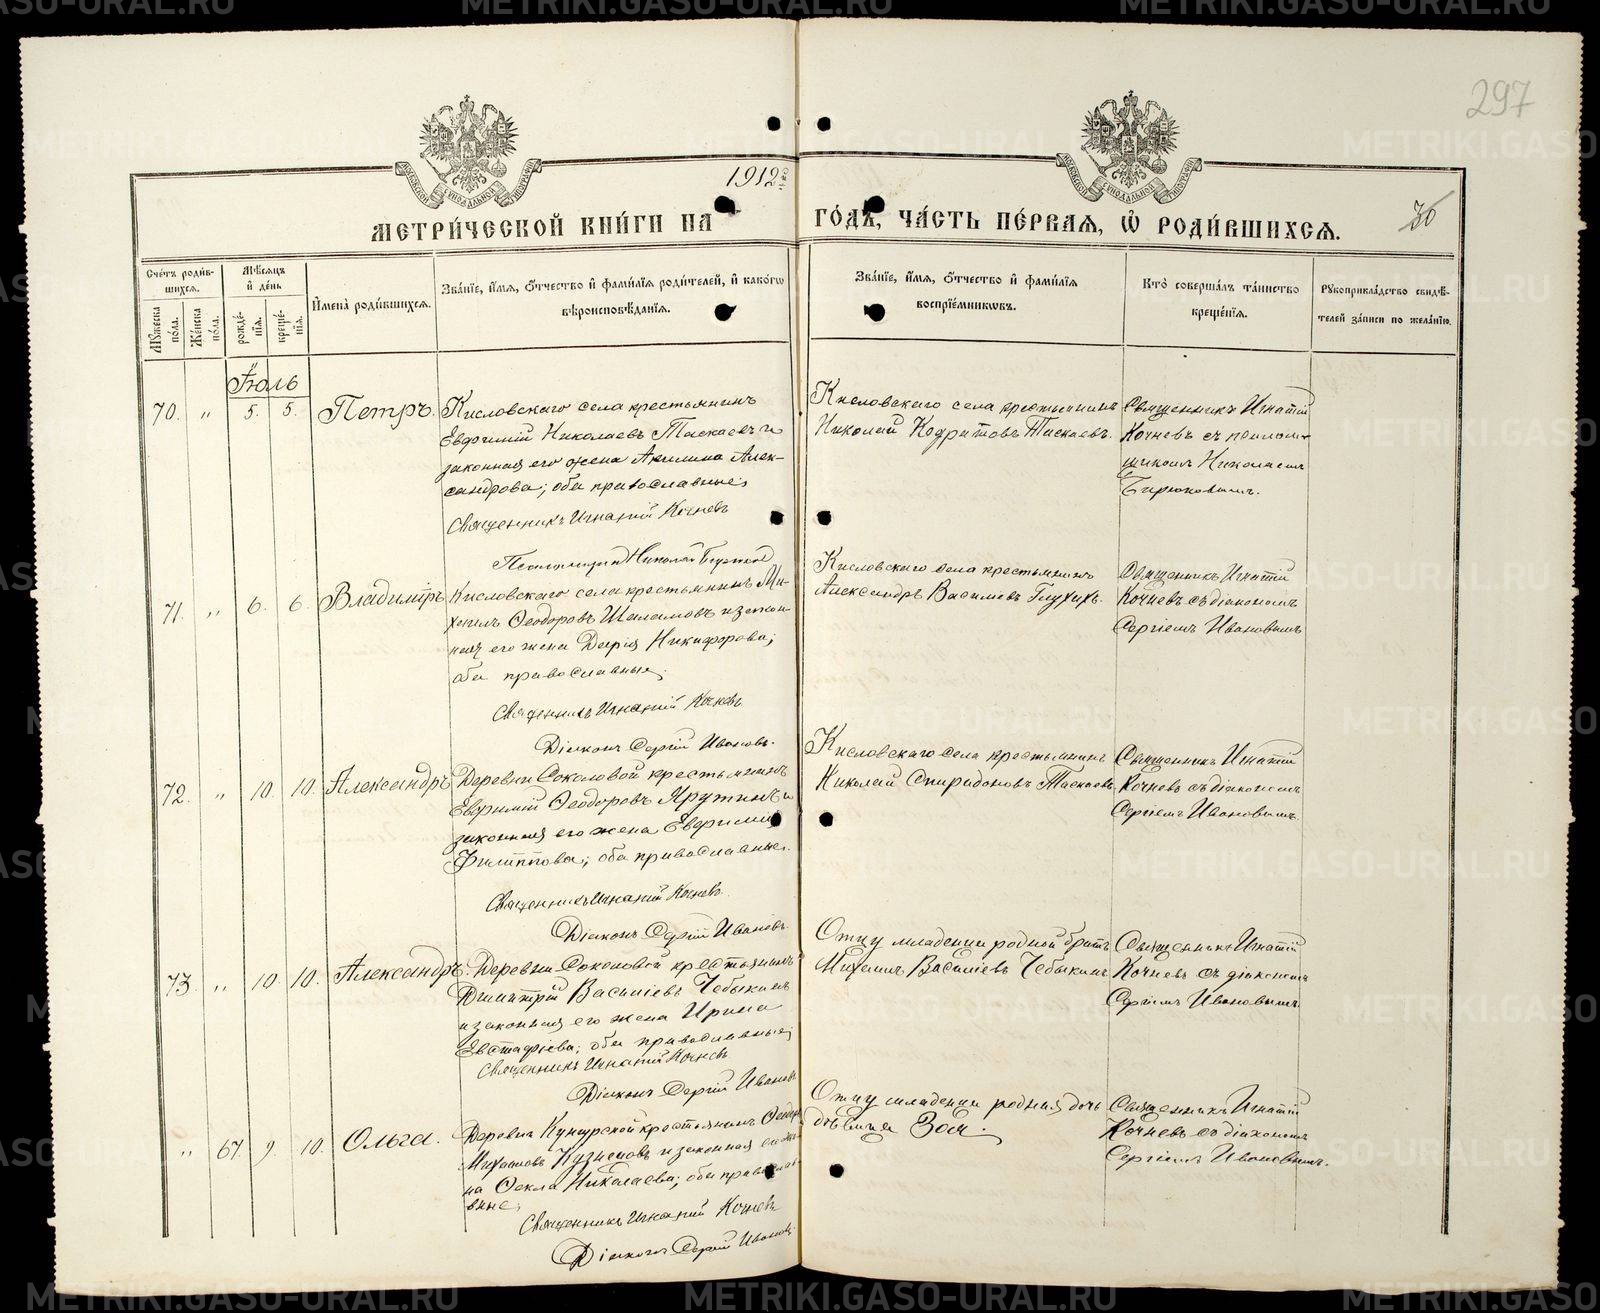 297
1912
30
МЕТРИ́ЧЕСКОЙ КНИ́ГИ НА
ГО́ДЪ, ЧА́СТЬ ПЕ́РВАЯ, Ѡ҆ РОДИ́ВШИХСЯ.
Сче́тъ роди́в-
шихся.
Мѣ́сяцъ
и҆ де́нь
Му́жеска по́ла.
Же́нска по́ла.
рожде́-
нїя.
креще́-
нїя.
И҆мена̀ роди́вшихся.
Зва́нїе, и҆́мя, ѻ҆́тчество и҆ фами́лїя роди́телей, и҆ како́гѡ
вѣроисповѣ́данїя.
Зва́нїе, и҆́мя, ѻ҆́тчество и҆ фами́лїя
воспрїе́мниковъ.
Кто̀ соверша́лъ та́инство
креще́нїя.
Рꙋкоприкла́дство свидѣ́-
телей за́писи по жела́нїю.
Іюль
70. " 5. 5. Петръ.
Кисловскаго села крестьянинъ
Евфимій Николаевъ Таскаевъ и
законная его жена Акилина Алек-
сандрова; оба православные;
Священникъ Игнатій Кочневъ
Псаломщикъ Николай Бирюков
Кисловскаго села крестьянинъ
Николай Таскаевъ.
Священникъ Игнатій
Кочневъ съ псалом-
щикомъ Николаемъ
Бирюковымъ.
71. " 6. 6. Владиміръ
Кисловскаго села крестьянинъ Ми-
хаилъ Ѳеодоровъ Шаламовъ и закон-
ная его жена Дарія Никифорова;
оба православные;
Священникъ Игнатій Кочневъ
Діаконъ Сергій Ивановъ.
Кисловскаго села крестьянинъ
Александръ Василіевъ Глухихъ.
Священникъ Игнатій
Кочневъ съ діакономъ
Сергіемъ Ивановымъ
72. " 10. 10. Александръ
Деревни Соколовой крестьянинъ
Евфимій Ѳеодоровъ Ярутинъ и
законная его жена Евфимія
Филиппова; оба православные.
Священникъ Игнатій Кочневъ
Діаконъ Сергій Ивановъ
Кисловскаго села крестьянинъ
Николай Спиридоновъ Таскаевъ
Священникъ Игнатій
Кочневъ съ діакономъ
Сергіемъ Ивановымъ.
73. " 10. 10. Александръ.
Деревни Соколовой крестьянинъ
Димитрій Василіевъ Чебыкинъ
и законная его жена Ирина
Евстафіева; оба православные;
Священникъ Игнатій Кочневъ
Діаконъ Сергій Ивановъ
Отцу младенца родной братъ
Михаилъ Василіевъ Чебыкинъ
Священникъ Игнатій
Кочневъ съ діакономъ
Сергіемъ Ивановымъ
" 67. 9. 10. Ольга.
Деревни Кунгурской крестьянинъ Ѳеодоръ
Михаиловъ Кузнецовъ и законная его же-
на Ѳекла Николаева; оба православ-
вные;
Священникъ Игнатій Кочневъ
Діаконъ Сергій Ивановъ
Отцу младенца родная дочь
дѣвица Зоя.
Священникъ Игнатій
Кочневъ съ діакономъ
Сергіемъ Ивановымъ.
METRIKI.GASO-URAL.RU